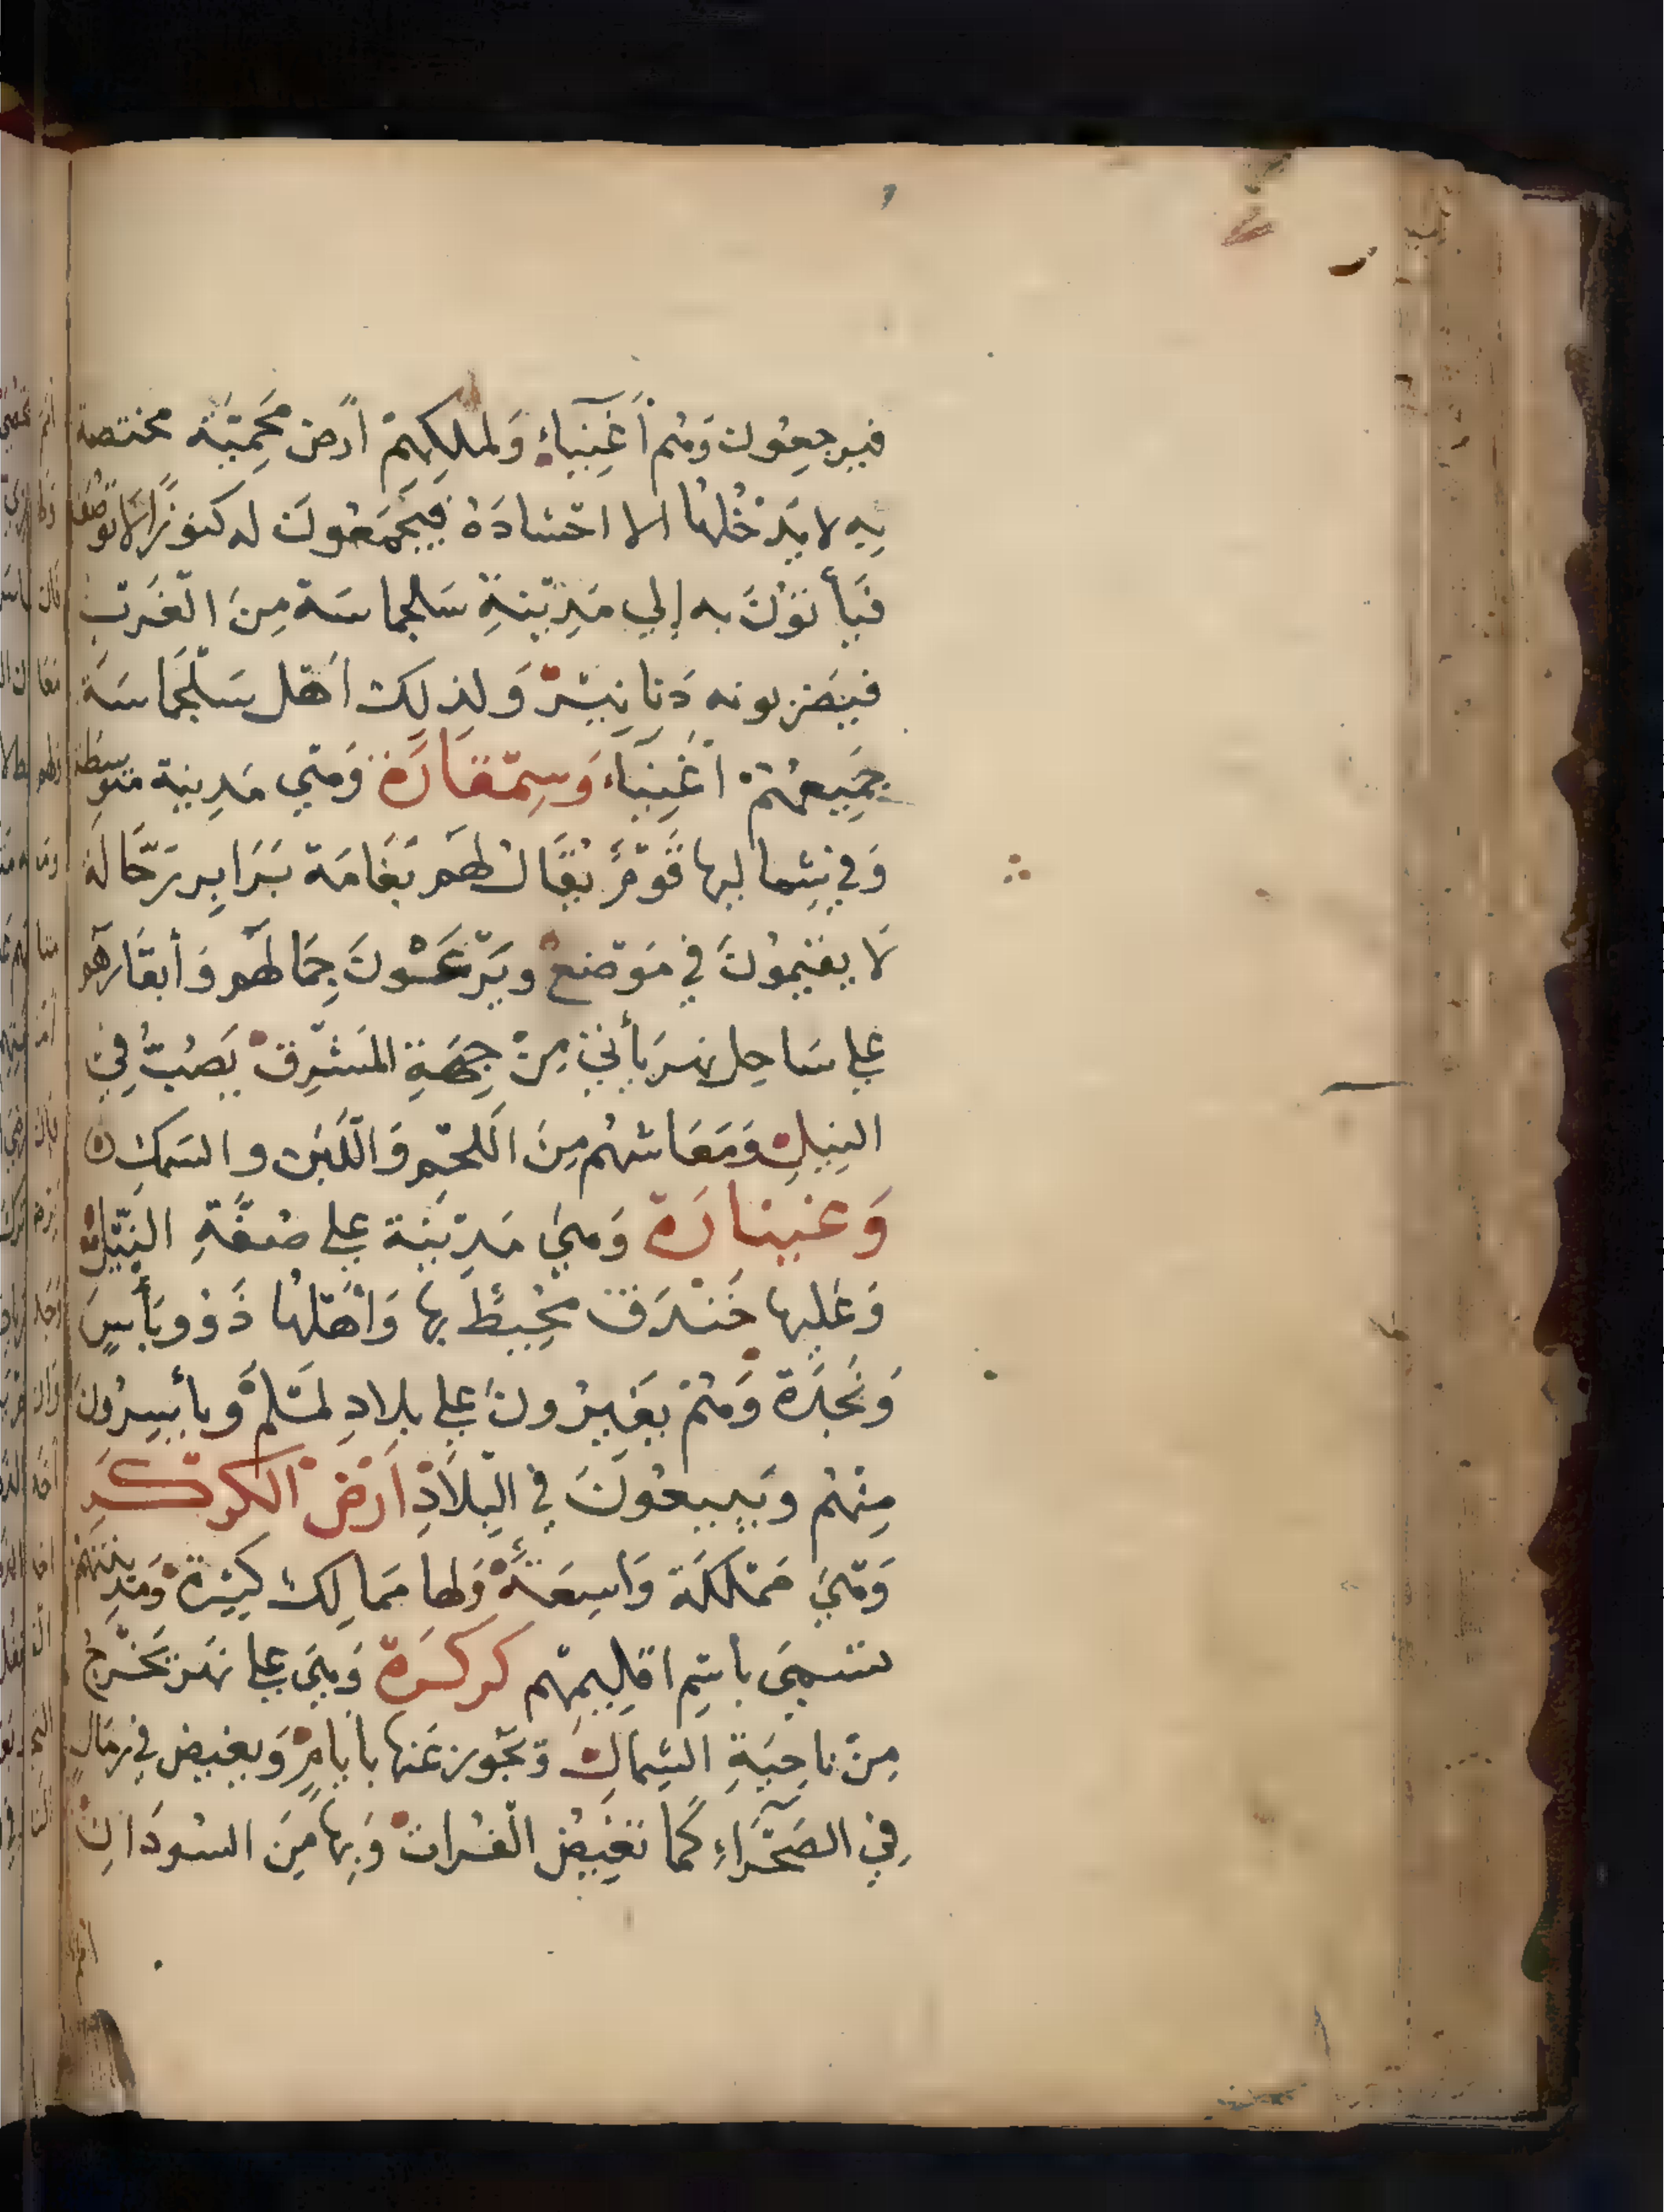 فيرجعون وَهُم أَغْنِيَاءُ وَلملكِهِمْ أرض مَحْمِيَّة مختصة
بِهِ لا يَدْخُلُها الا اجْنَادَهُ فيَجْمَعُونَ له كنوزًا لَا توصَف
فَيَأتوْنَ به إلي مَدِيْنةِ سَلجماسَة مِنَ الْغَرْبِ
فيضربونه دَنانِيْرْ وَلِذلِكَ اَهْل سَلْجَمَاسَةَ
جَمِيعهُمْ اغْنِيَاء وَسِمْقَارَة وَهْي مَدِينة متوسِطَة
وَفي شِماليها قَوْمٌ يُقَال لَهم بَغَامَة بَرَابِر رَحَّالَة
لَا يقيْمُونَ في مَوْضعْ ويَرْعَوْنَ جِمَالهم وَأبقارهم
علي سَاحِل نهر يَأتي مِنْ جِهَةِ المَشْرِقْ يَصُبُّ فِي
النِيلْ وَمَعَاشهُم مِنَ اللحْمِ وَاللَّبَن والسَمكِ ه
وَغنيارَة وَهيَ مَدِيْنَة علي ضفَّةِ النِيْلْ
وَعَليها خَنْدَق مُحِيْط بها وَأَهْلُها ذَوُو بَأسٍ
وَنَجْدَة وَهُمْ يغَيرُونَ علي بلادِ لَمْلَمْ وَيأسِرُونَ
مِنْهُم ويَبيعُونَ في الْبِلَادِ اَرْضْ الكركَر
وَهْيَ مَمْلكَة وَاسِعَةٌ وَلها مَمالِك كَثِيْرَة وَمَدِينَتهمْ
تسَمي باسْمِ اقلِيمهِم كركرَة وَهيَ علي نَهر يَخْرجُ
مِنْ ناحِيَةِ الشِمالْ وَتجَوز عَنها بأيامٍ وَيغيض في رمَالٍ
فِي الصَحْرَاءِ كَما تَغِيْضُ الْفُراتْ وَبِهَا مِنَ السُودَانِ